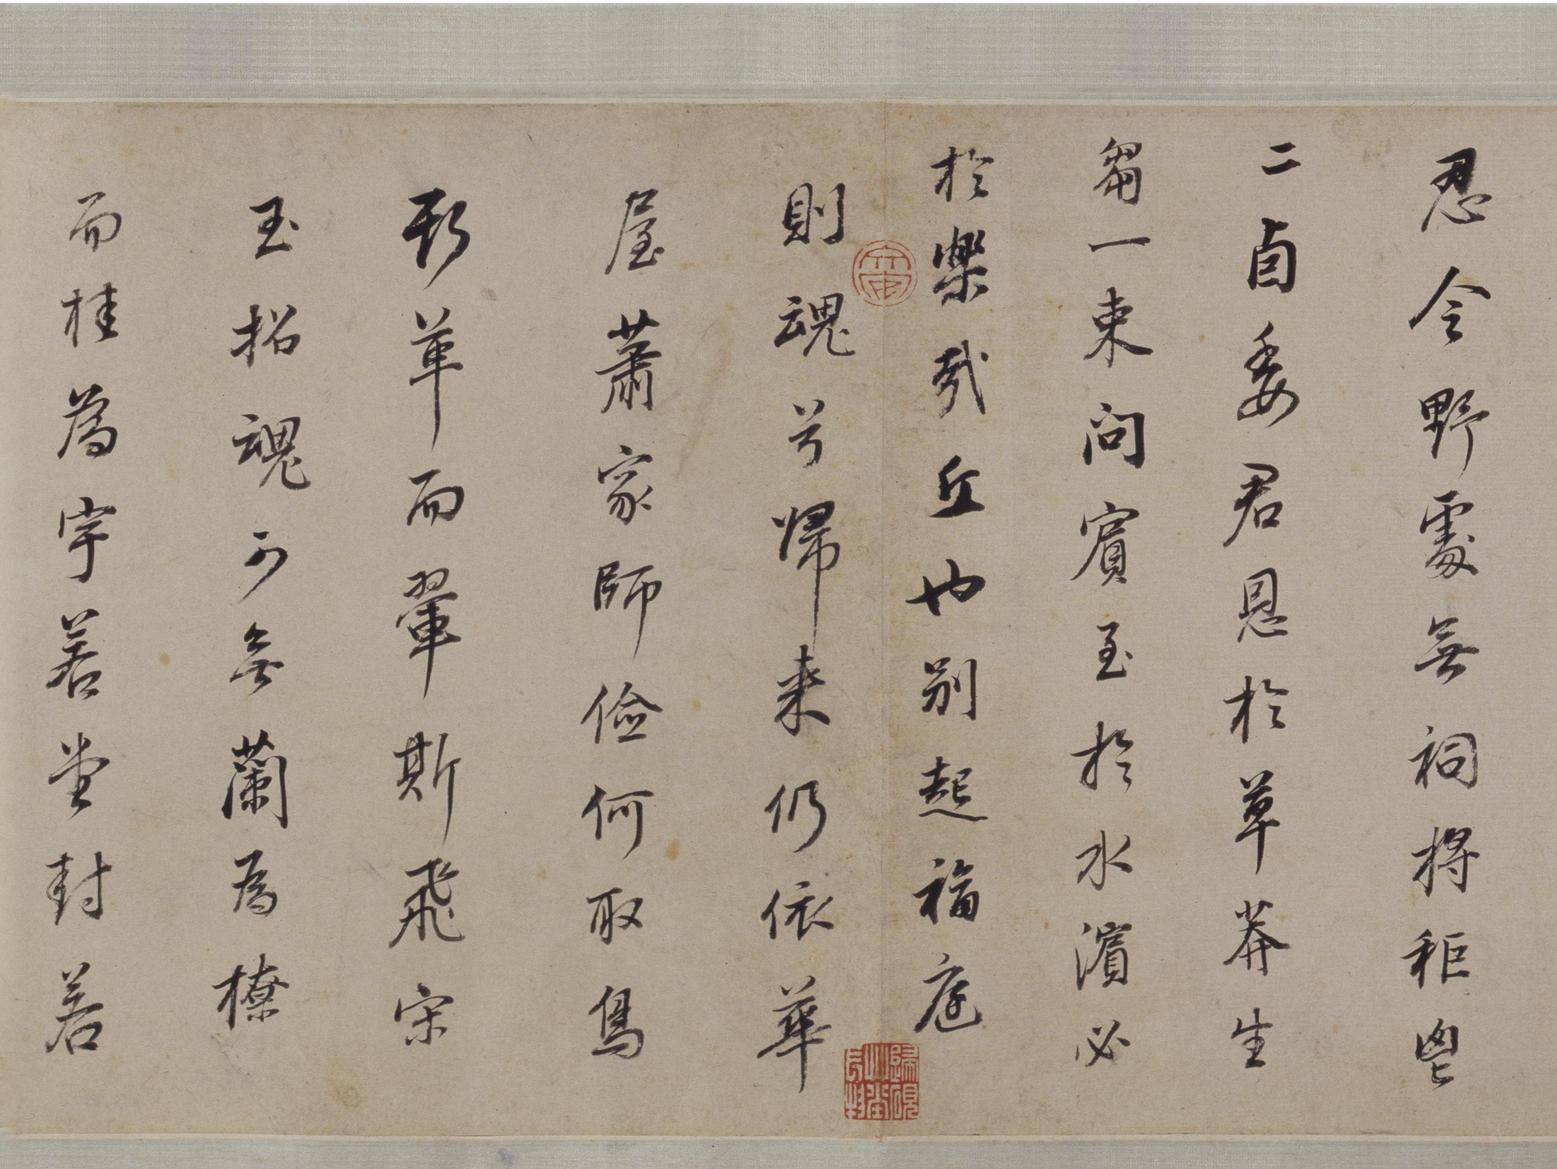 忍令野處無祠將秬鬯
二卣委君恩於草莽生
芻一束問賓至於水濱必
於樂哉丘也別起福庭
則魂兮歸來仍依華
屋蕭家師儉何取鳥
斯革而翬斯飛宋
玉招魂可無蘭為橑
而桂為宇若堂封若